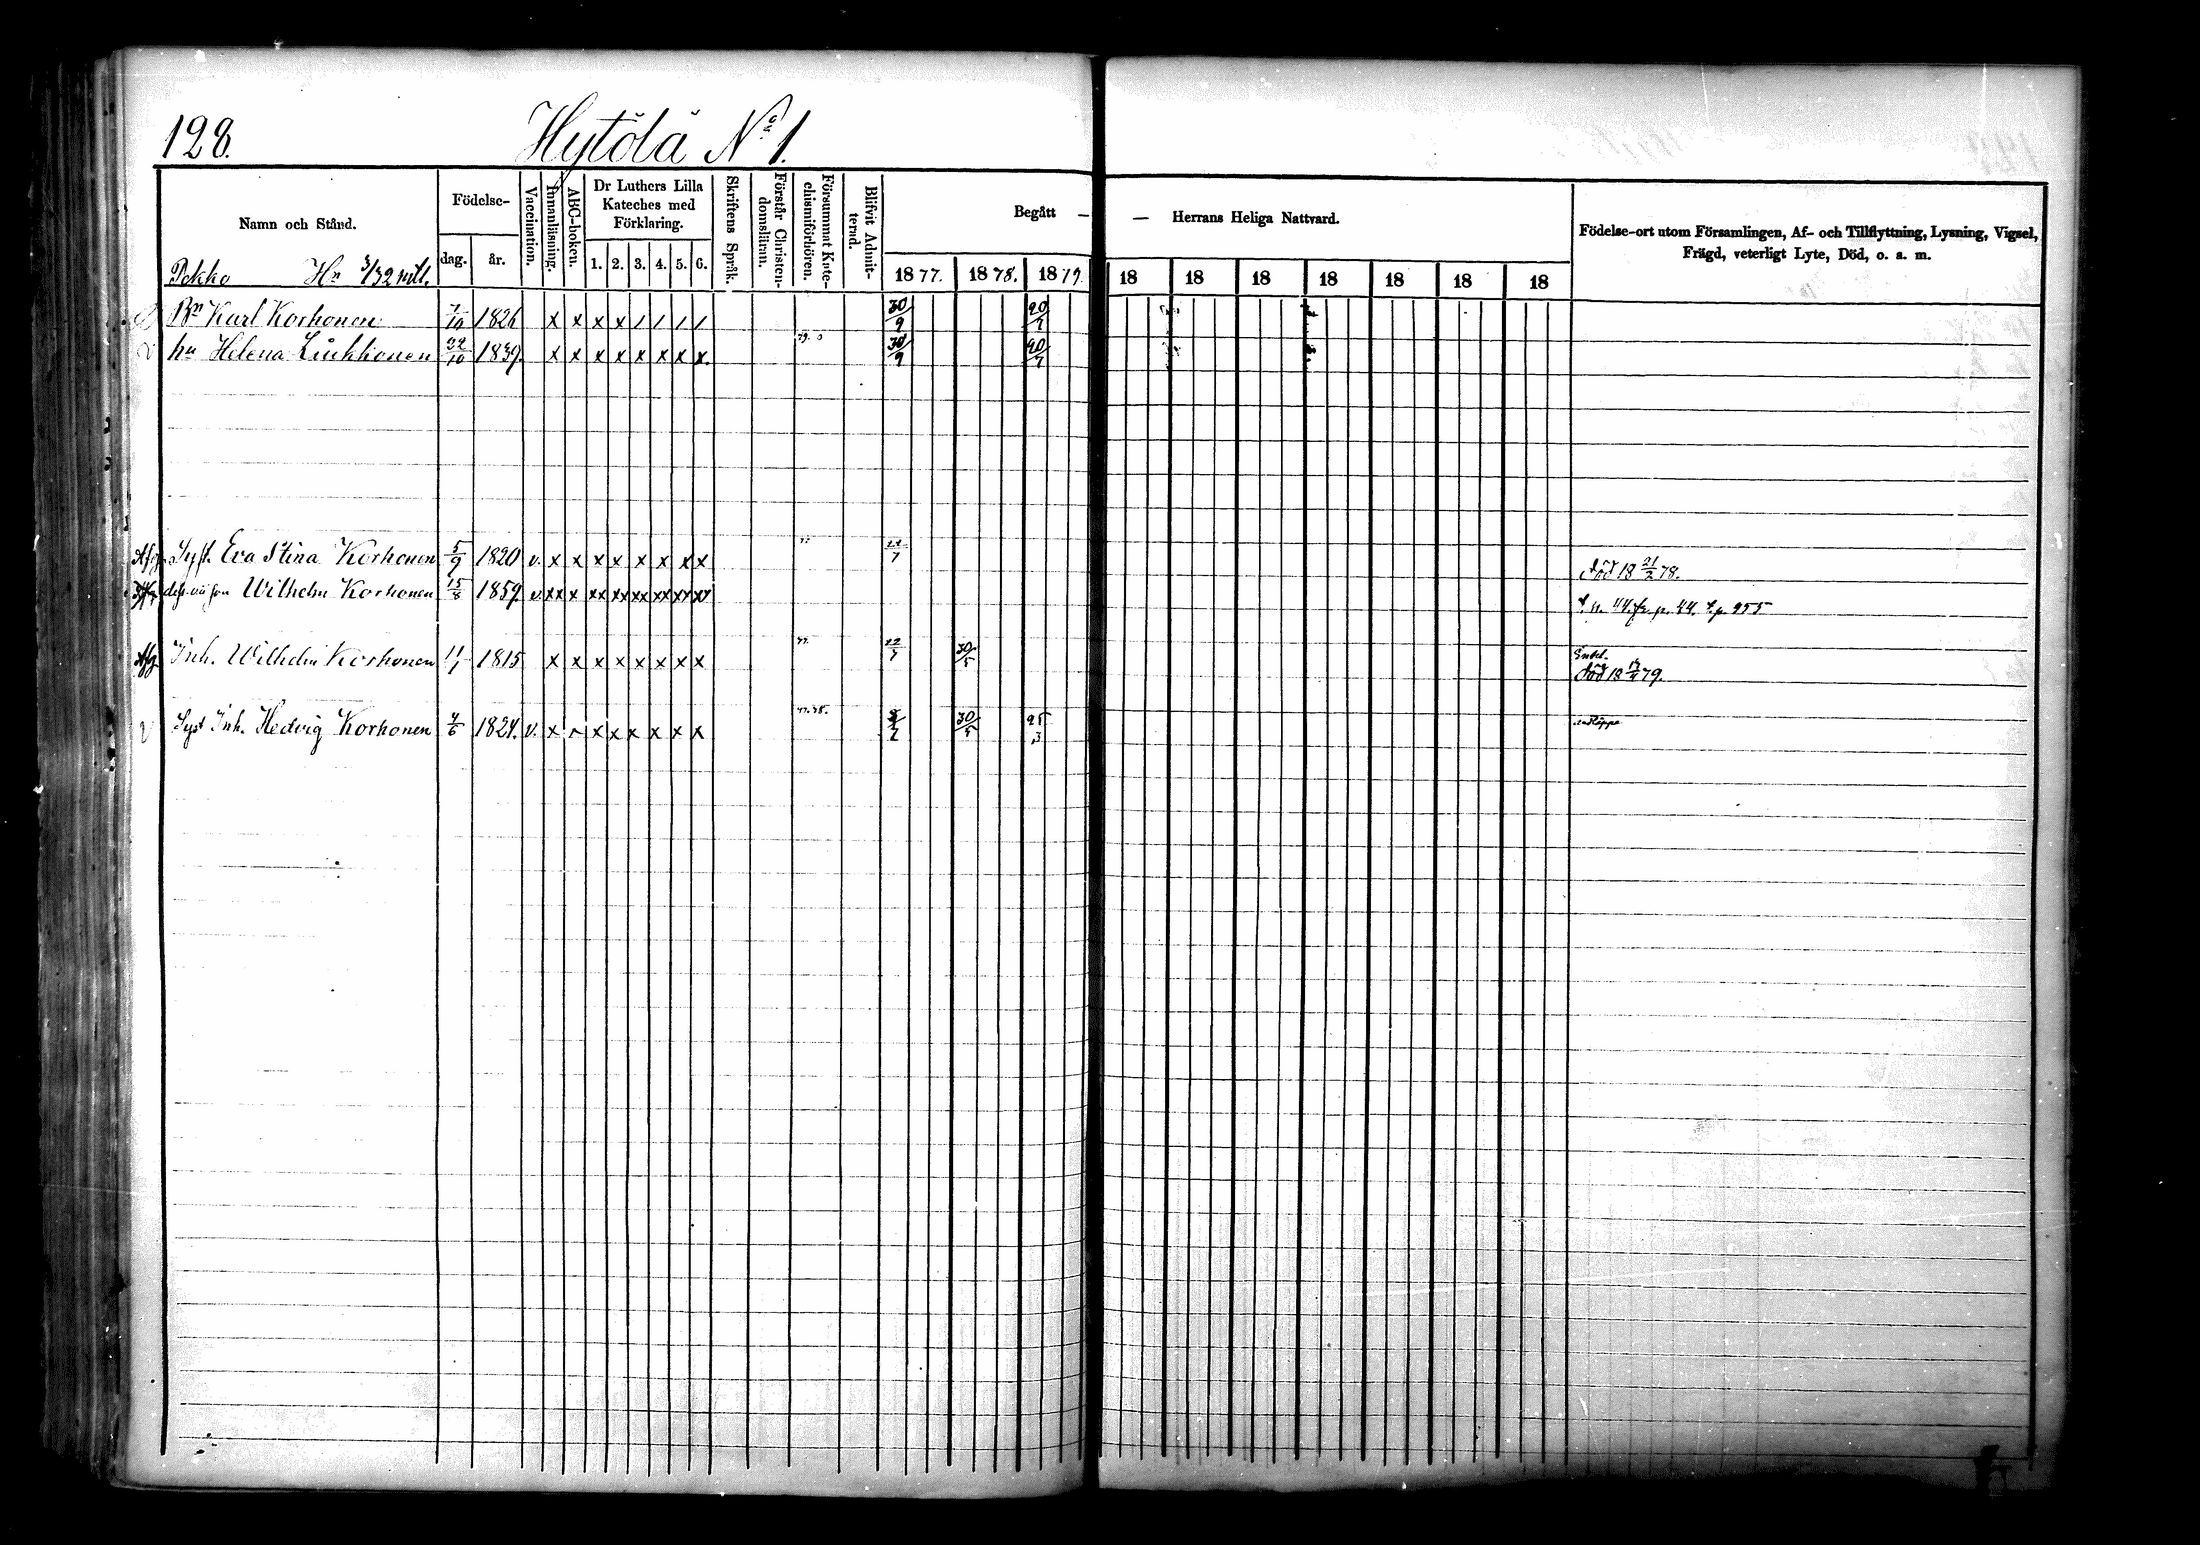 128. Hytölä No 1.
Namn och Stånd.
Födelse-
dag. år.
Vaccination.
Innanläsning.
ABC-boken.
Dr Luthers Lilla
Kateches med
Förklaring.
1. 2. 3. 4. 5. 6.
Skriftens Språk.
Förstår Christen-
domsläran.
Försummat Kate-
chismiförhören.
Blifvit Admit-
terad.
Begått — — Herrans Heliga Nattvard.
1877. 1878. 1879. 18 18 18 18 18 18 18
Födelse-ort utom Församlingen, Af- och Tillflyttning, Lysning, Vigsel,
Frägd, veterligt Lyte, Död, o. a. m.
Pekka Hn 3/32 mtl.
Bn Karl Korhonen 7/10 1826 x x x x / / / / 30/9 20/7
hu Helena 10 1839. x x x x x x x x. 30/9 20/7
Afg. Syst. Eva Stina Korhonen 5/9 1820 v. x x x x x x x x 22/7 död 18 21/2 78.
son Wilhelm Korhonen 15/8 1859. v xx x xx xx xx xx xx xx p. 44.
Afg Inh. Wilhelm Korhonen 11/1 1815 x x x x x x x x 77. 22/7 30/5 Enkl.
död 18 79.
Syst Inh. Hedvig Korhonen 1824. v. x x x x x x x 77.78. 30/5 25/3